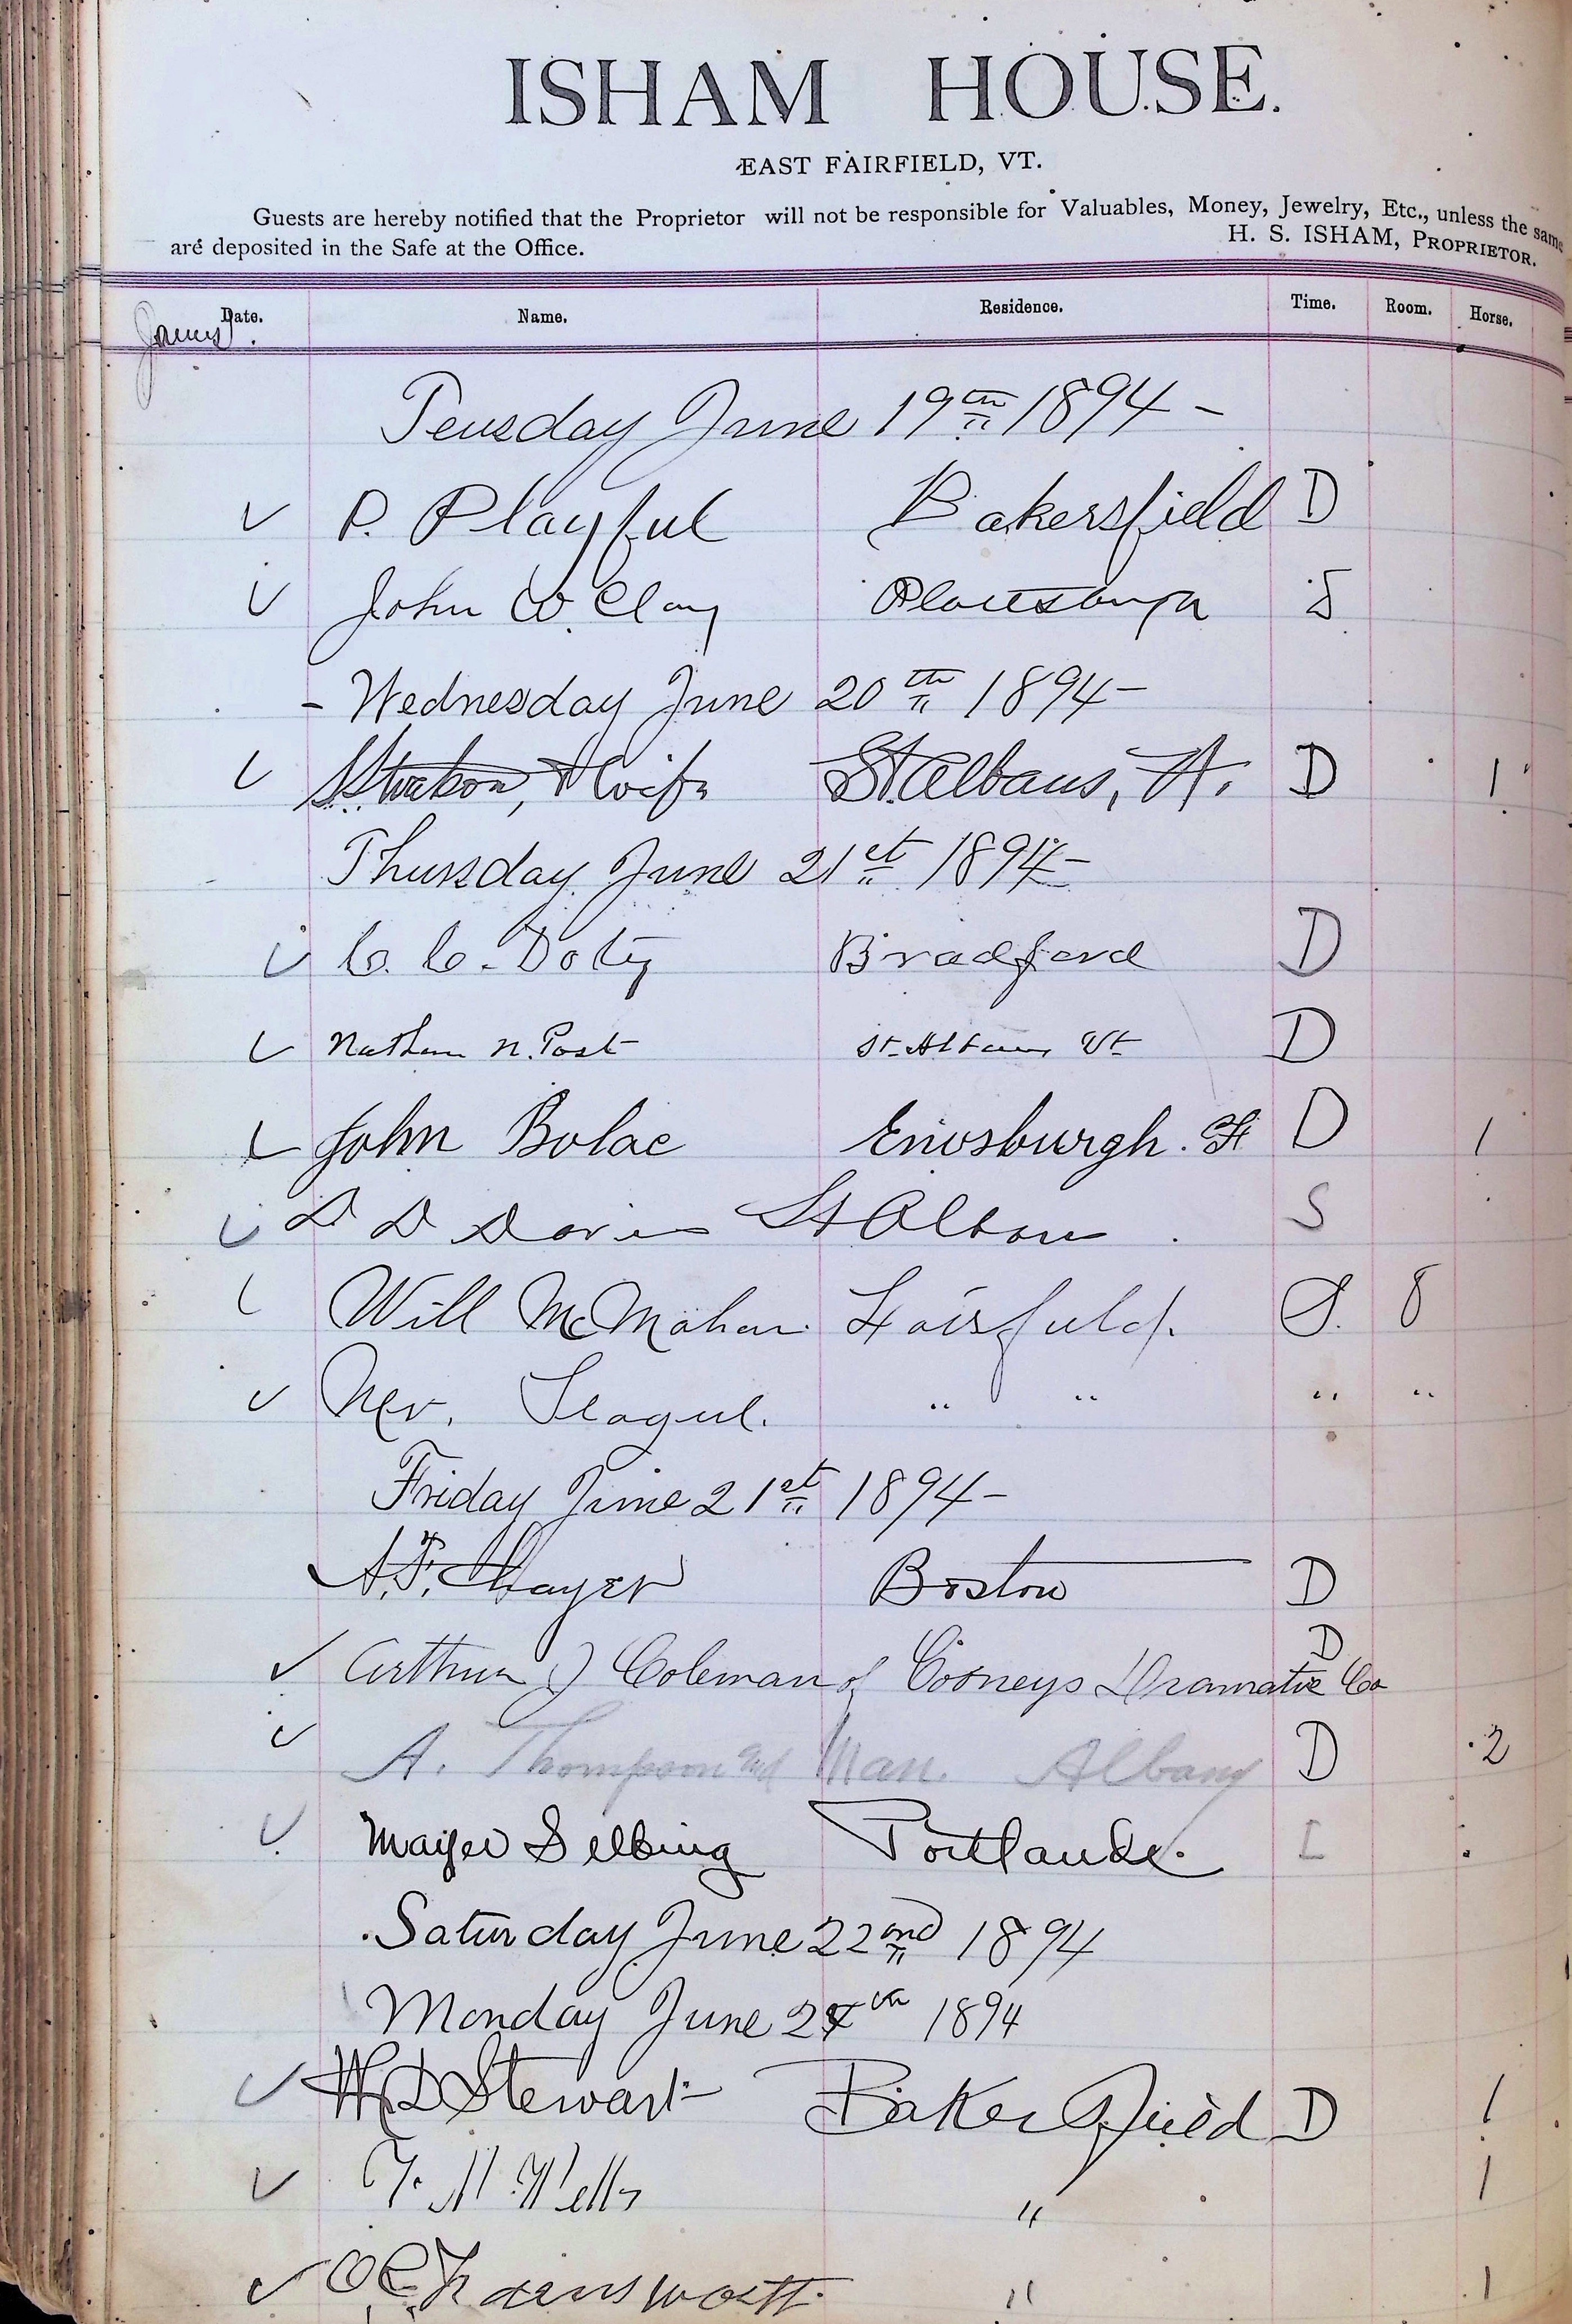 ISHAM HOUSE.
EAST FAIRFIELD, VT.
Guests are hereby notified that the Proprietor will not be responsible for Valuables, Money, Jewelry, Etc., unless the same
are deposited in the Safe at the Office. H. S. ISHAM, PROPRIETOR.
Date. Name. Residence. Time. Room. Horse.
Teusday June 19th 1894 -
P. Playful Bakersfield D
John W. Clay Plattsburgh S
- Wednesday June 20th 1894 -
& Wife St. Albans, Vt. D 1
Thursday June 21st 1894 -
C. C. Doty Bradford D
Nathan N. Post St. Albans Vt D
John Bolac Enosburgh. D 1
D D Davis St Albans S
Will McMahon Fairfield. S. 8
Teague. " " " "
Friday June 21st 1894 -
A. F. Thayer Boston D
D
Arthur J Coleman of Cooneys Dramatic Co
A. Thompson and Man. Albany D 2
Mayer Portland
Saturday June 22nd 1894
Monday June 24th 1894
W D Stewart Bakersfield D 1
Wells " 1
Farnsworth " 1